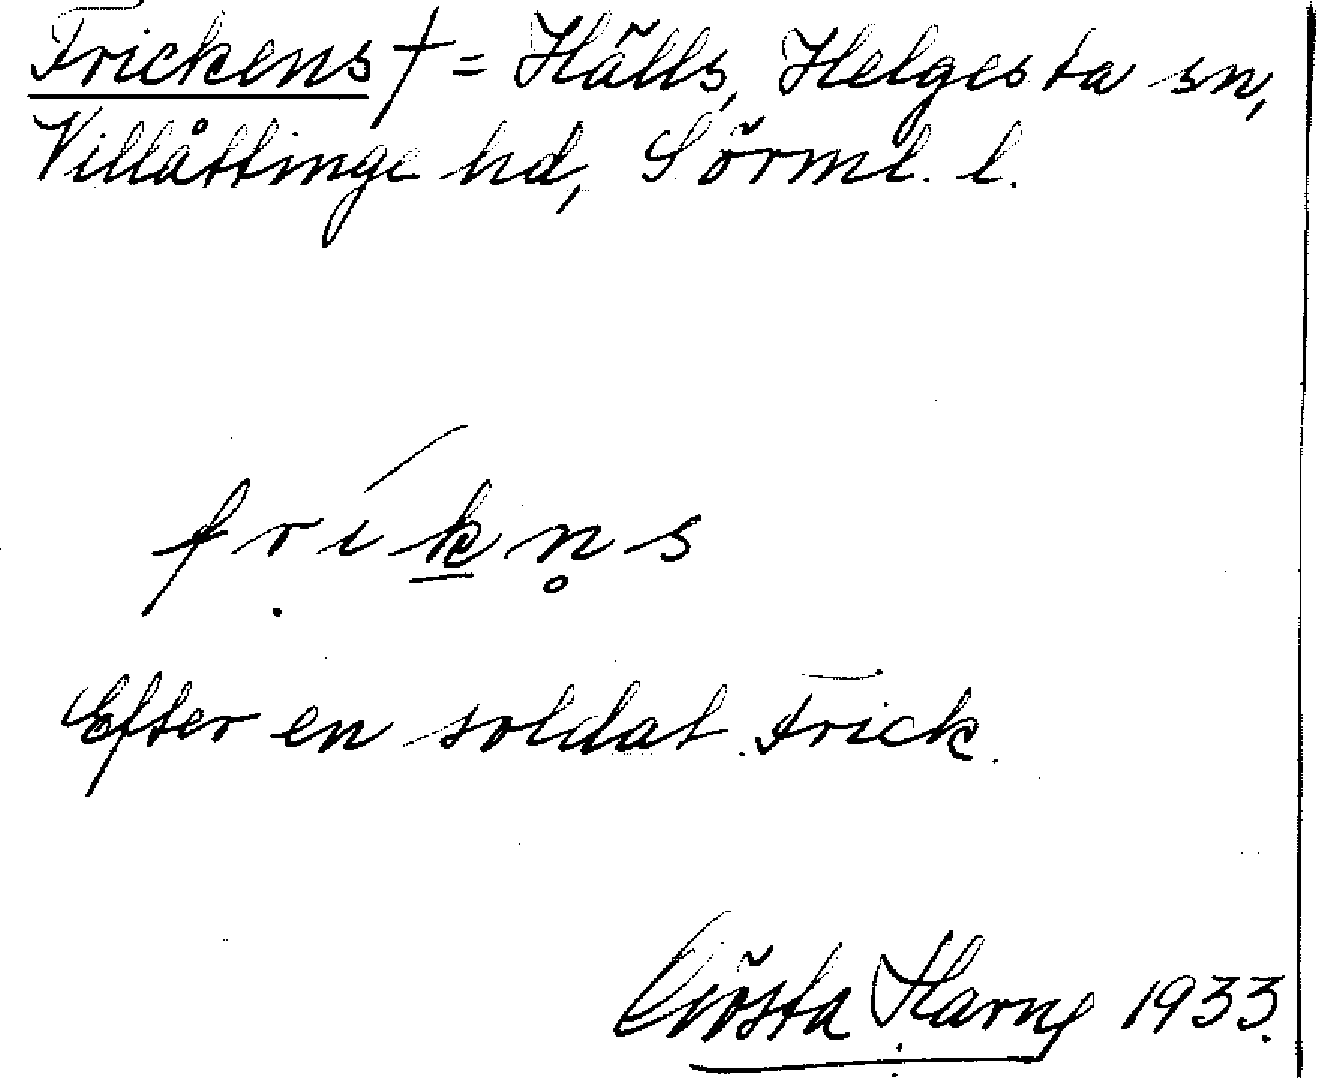 Frickens † = Hälls, Helgesta sn,
Villåttinge hd, Sörml. l.
fríkn̥s
Efter en soldat Frick.
Gösta Harne 1933.